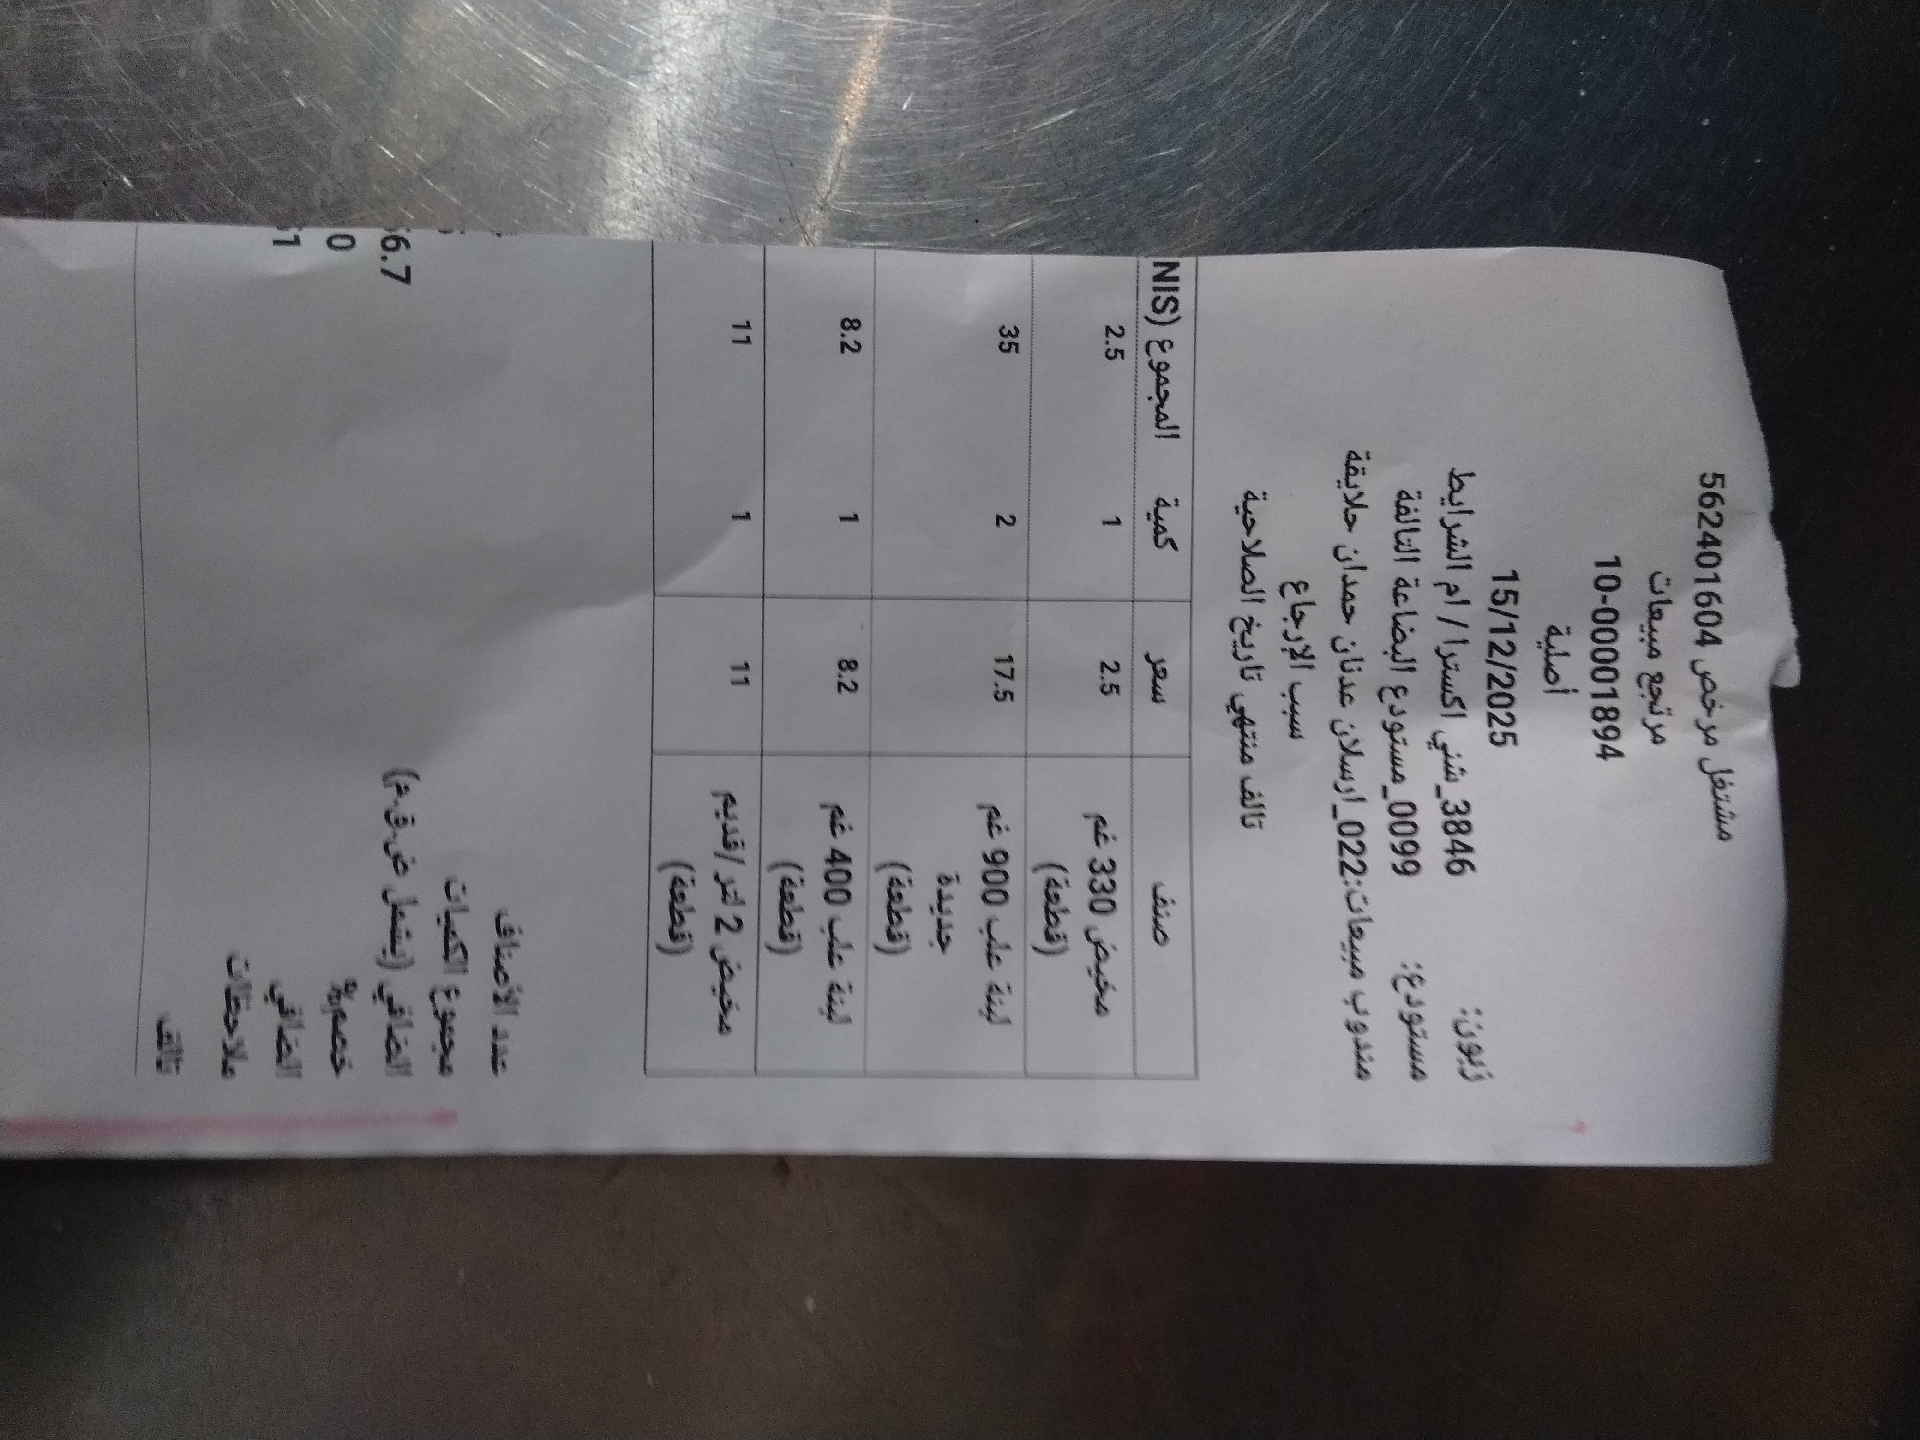 مشتغل مرخص 562401604
مرتجع مبيعات
10-00001894
أصلية
15/12/2025
زبون: 3846_شني اكسترا / ام الشرايط
مستودع: 0099_مستودع البضاعة التالفة
مندوب مبيعات:022_ارسلان عدنان حمدان حلايقة
سبب الإرجاع
تالف منتهي تاريخ الصلاحية
صنف سعر كمية المجموع (NIS
مخيض 330 غم 2.5 1 2.5
(قطعة)
لبنة علب 900 غم 17.5 2 35
جديدة
(قطعة)
لبنة علب 400 غم 8.2 1 8.2
(قطعة)
مخيض 2 لتر /قديم 11 1 11
(قطعة)
عدد الأصناف
مجموع الكميات
الصافي (يشمل ض.ق.م) 6.7
خصم% 0
الصافي 1
ملاحظات
تالف